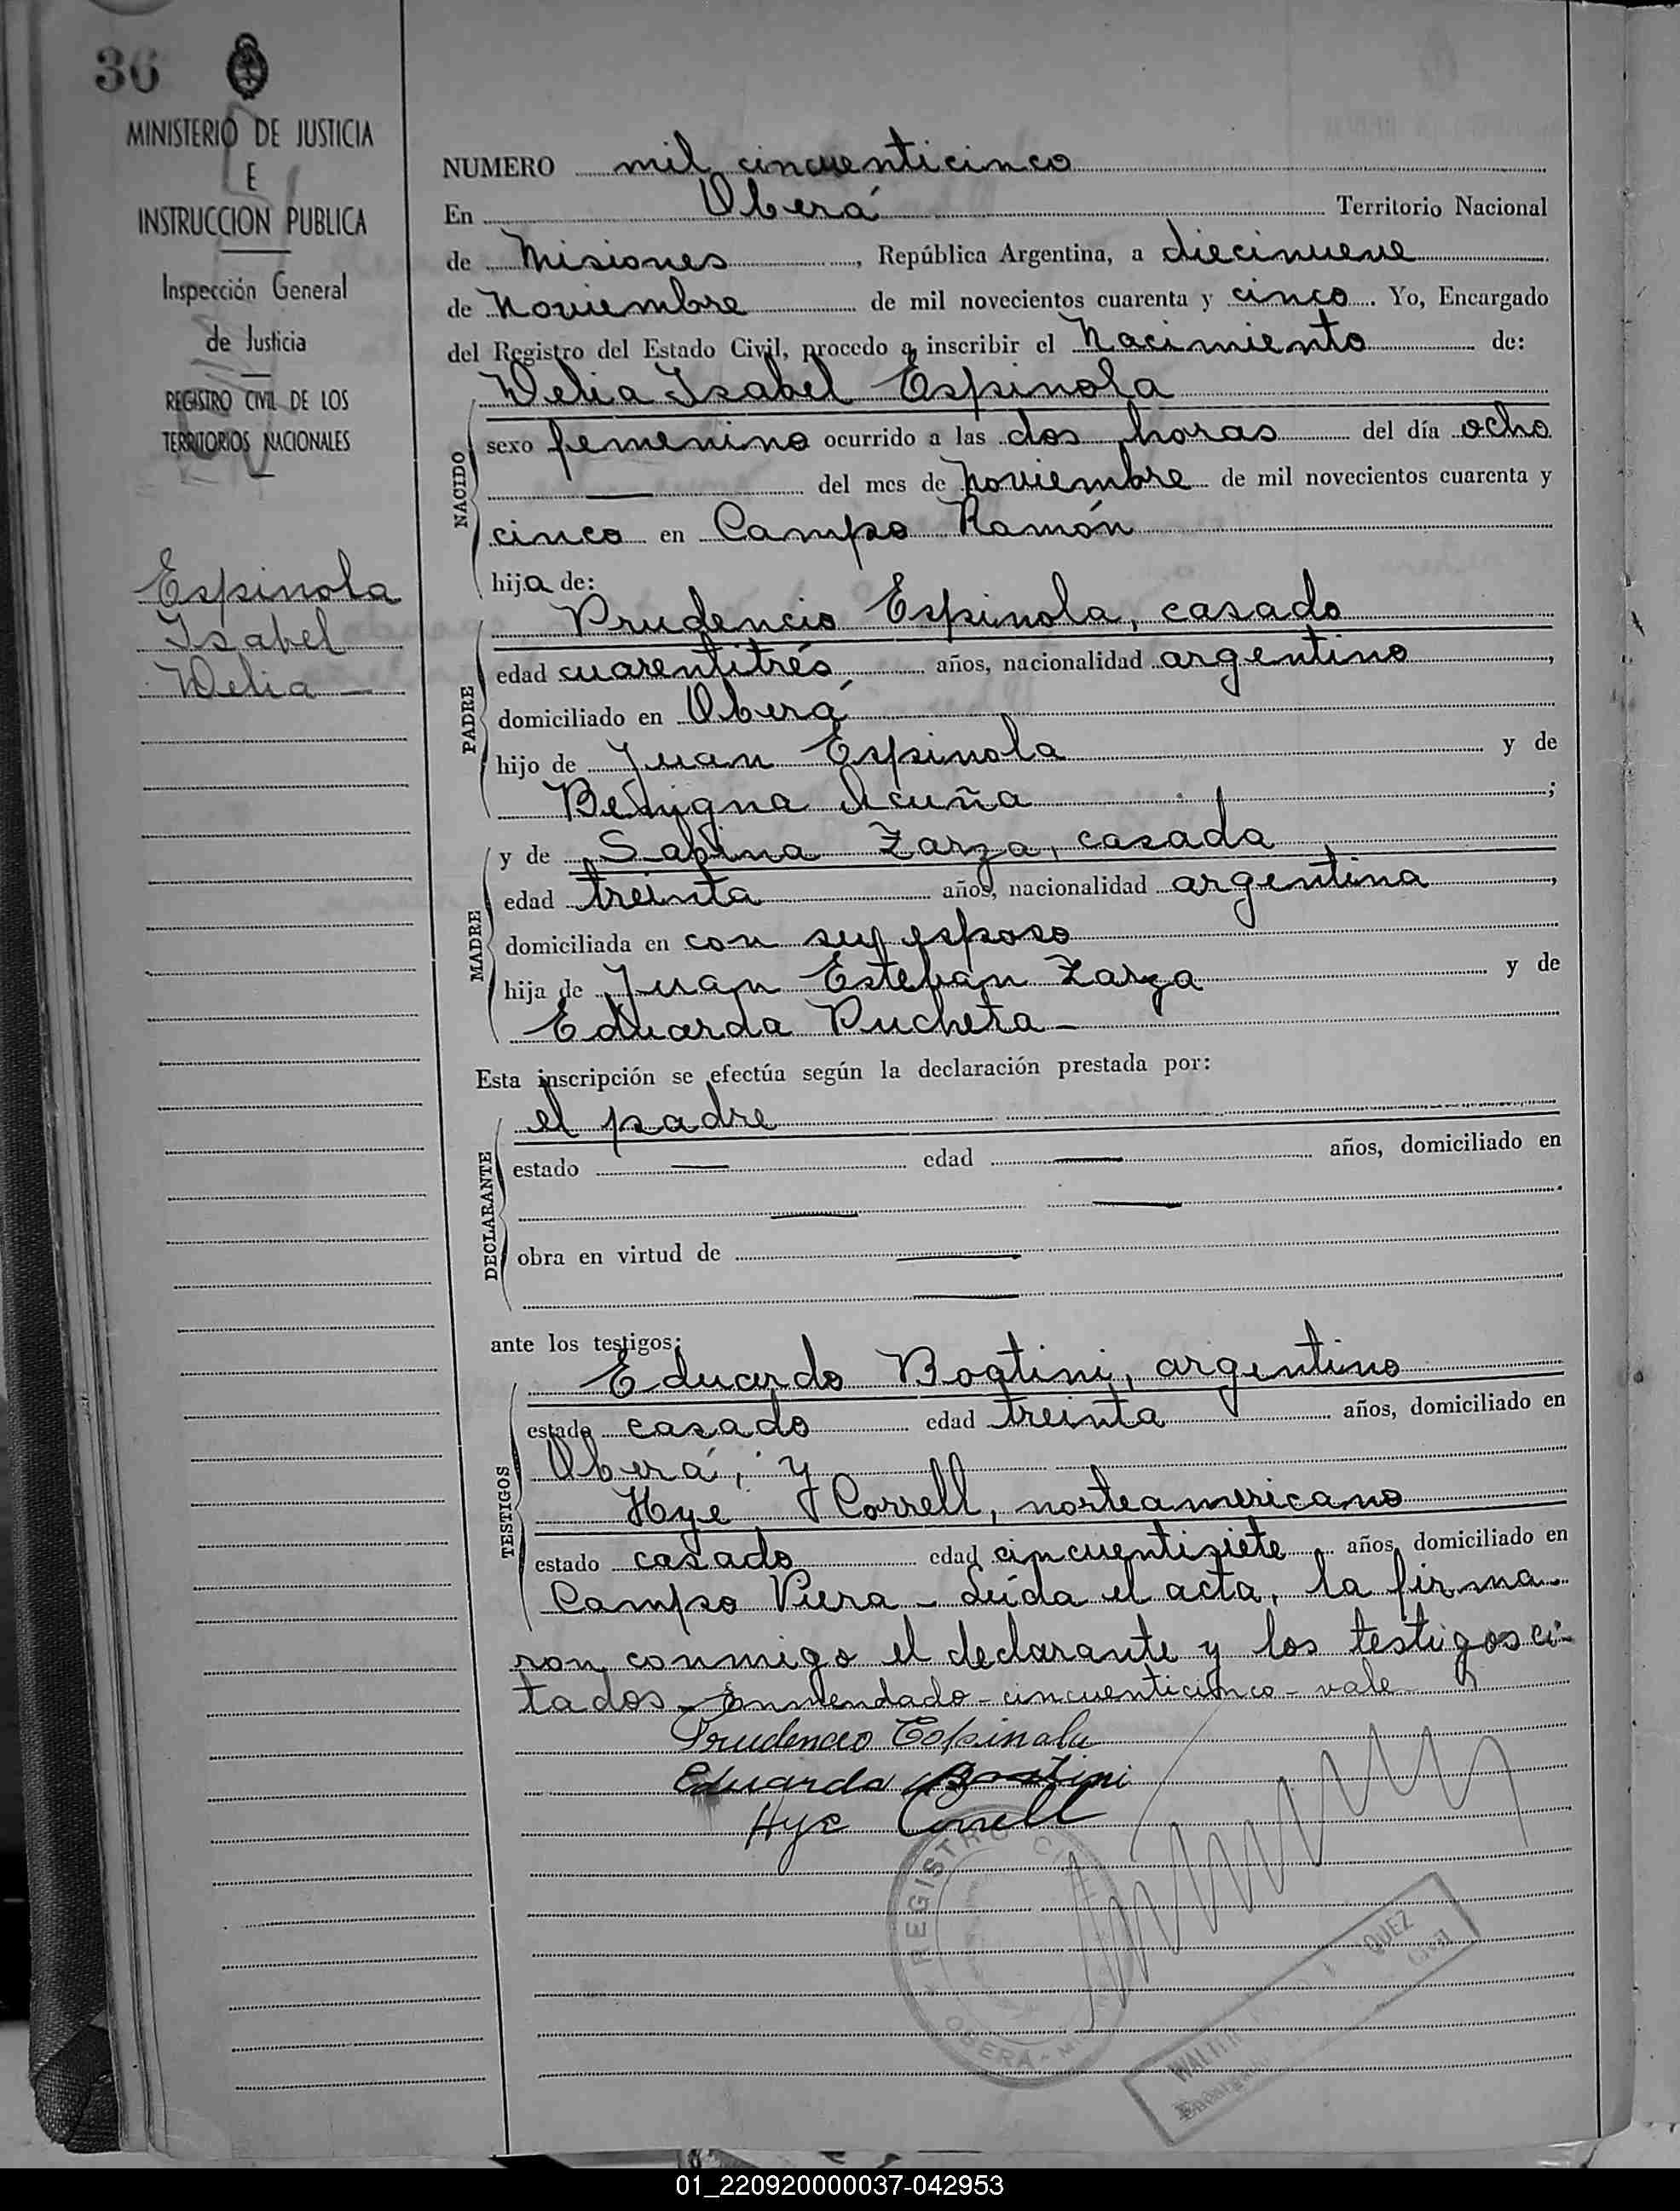 36
MINISTERIO DE JUSTICIA
E
INSTRUCCION PUBLICA
Inspección General
de Justicia
REGISTRO CIVIL DE LOS
TERRITORIOS NACIONALES
Espinola
Isabel
Delia -
NUMERO mil cincuenticinco
En Oberá Territorio Nacional
de Misiones, República Argentina, a diecinueve
de Noviembre de mil novecientos cuarenta y cinco. Yo, Encargado
del Registro del Estado Civil, procedo a inscribir el Nacimiento de:
Delia Isabel Espinola
NACIDO
sexo femenino ocurrido a las dos horas del día ocho
— del mes de Noviembre de mil novecientos cuarenta y
cinco en Campo Ramón
hija de:
Prudencio Espinola, casado
PADRE
edad cuarentitrés años, nacionalidad argentino,
domiciliado en Oberá
hijo de Juan Espinola y de
Benigna Acuña;
y de Sabina Zarza, casada
MADRE
edad treinta años, nacionalidad argentina,
domiciliada en con su esposo
hija de Juan Esteban Zarza y de
Eduarda Pucheta -
Esta inscripción se efectúa según la declaración prestada por:
el padre
DECLARANTE
estado — edad — años, domiciliado en
— —
obra en virtud de —
—
ante los testigos:
Eduardo Boatini, argentino
TESTIGOS
estado casado edad treinta años, domiciliado en
Oberá, y
Hye Correll, norteamericano
estado casado edad cincuentisiete años, domiciliado en
Campo Viera - Leída el acta, la firma-
ron conmigo el declarante y los testigos ci-
tados - Enmendado - cincuenticinco - vale
Prudencio Espinola
Eduardo Boatini
Hye Correll
REGISTRO CIVIL
OBERA -
01_220920000037-042953